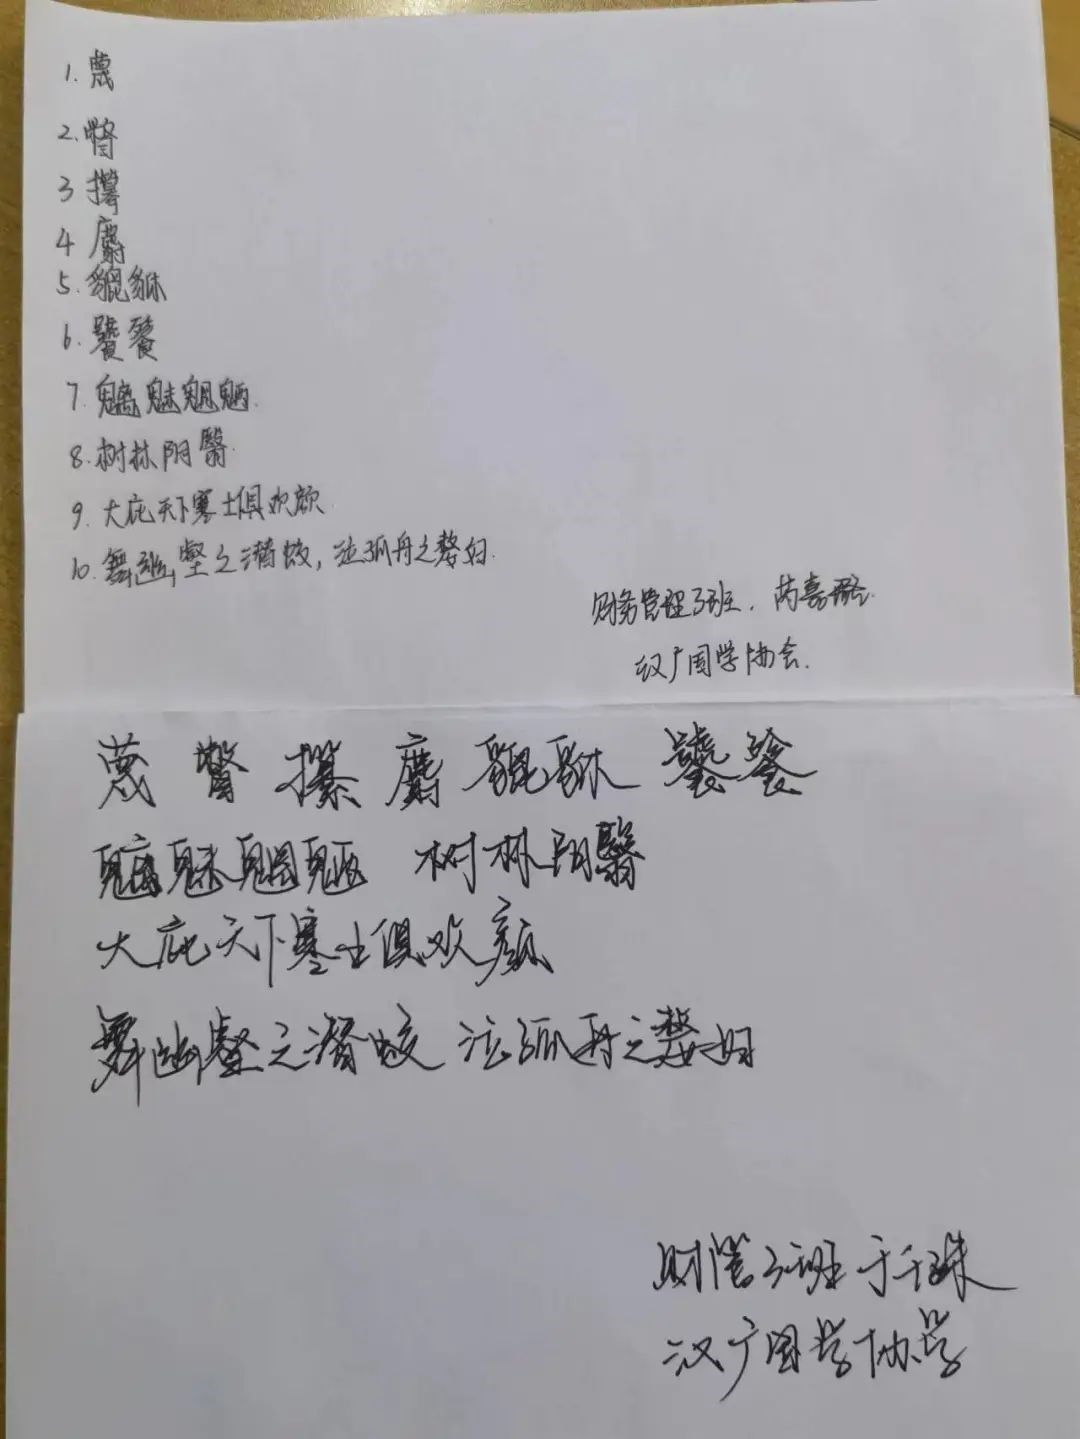 1. 蔑
2. 瞥
3 攥
4 麝
5. 貔貅
6. 饕餮
7. 魑魅魍魉.
8. 树林阴翳.
9. 大庇天下寒士俱欢颜.
10. 舞幽壑之潜蛟，泣孤舟之嫠妇.
财务管理3班. 芮嘉璐.
汉广国学协会.
蔑 瞥 攥 麝 貔貅 饕餮
魑魅魍魉 树林阴翳
大庇天下寒士俱欢颜
舞幽壑之潜蛟 泣孤舟之嫠妇
财管3班 于千珠
汉广国学协学